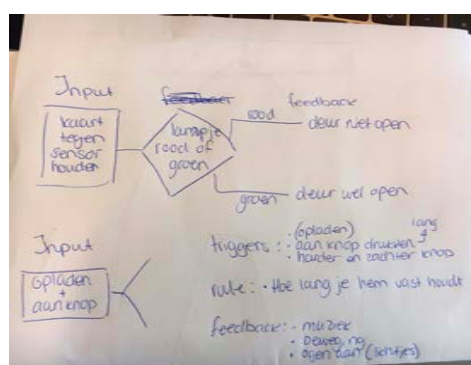 Input
kaart
tegen
sensor
houden
lampje
rood of
groen
rood
feedback
deur niet open
groen
deur wel open
Input
opladen
+
aan knop
triggers : · (opladen)
· aan knop drukken
lang
· harder en zachter knop
rule : · Hoe lang je hem vast houdt
feedback : · muziek
· beweging
· ogen aan (lichtjes)